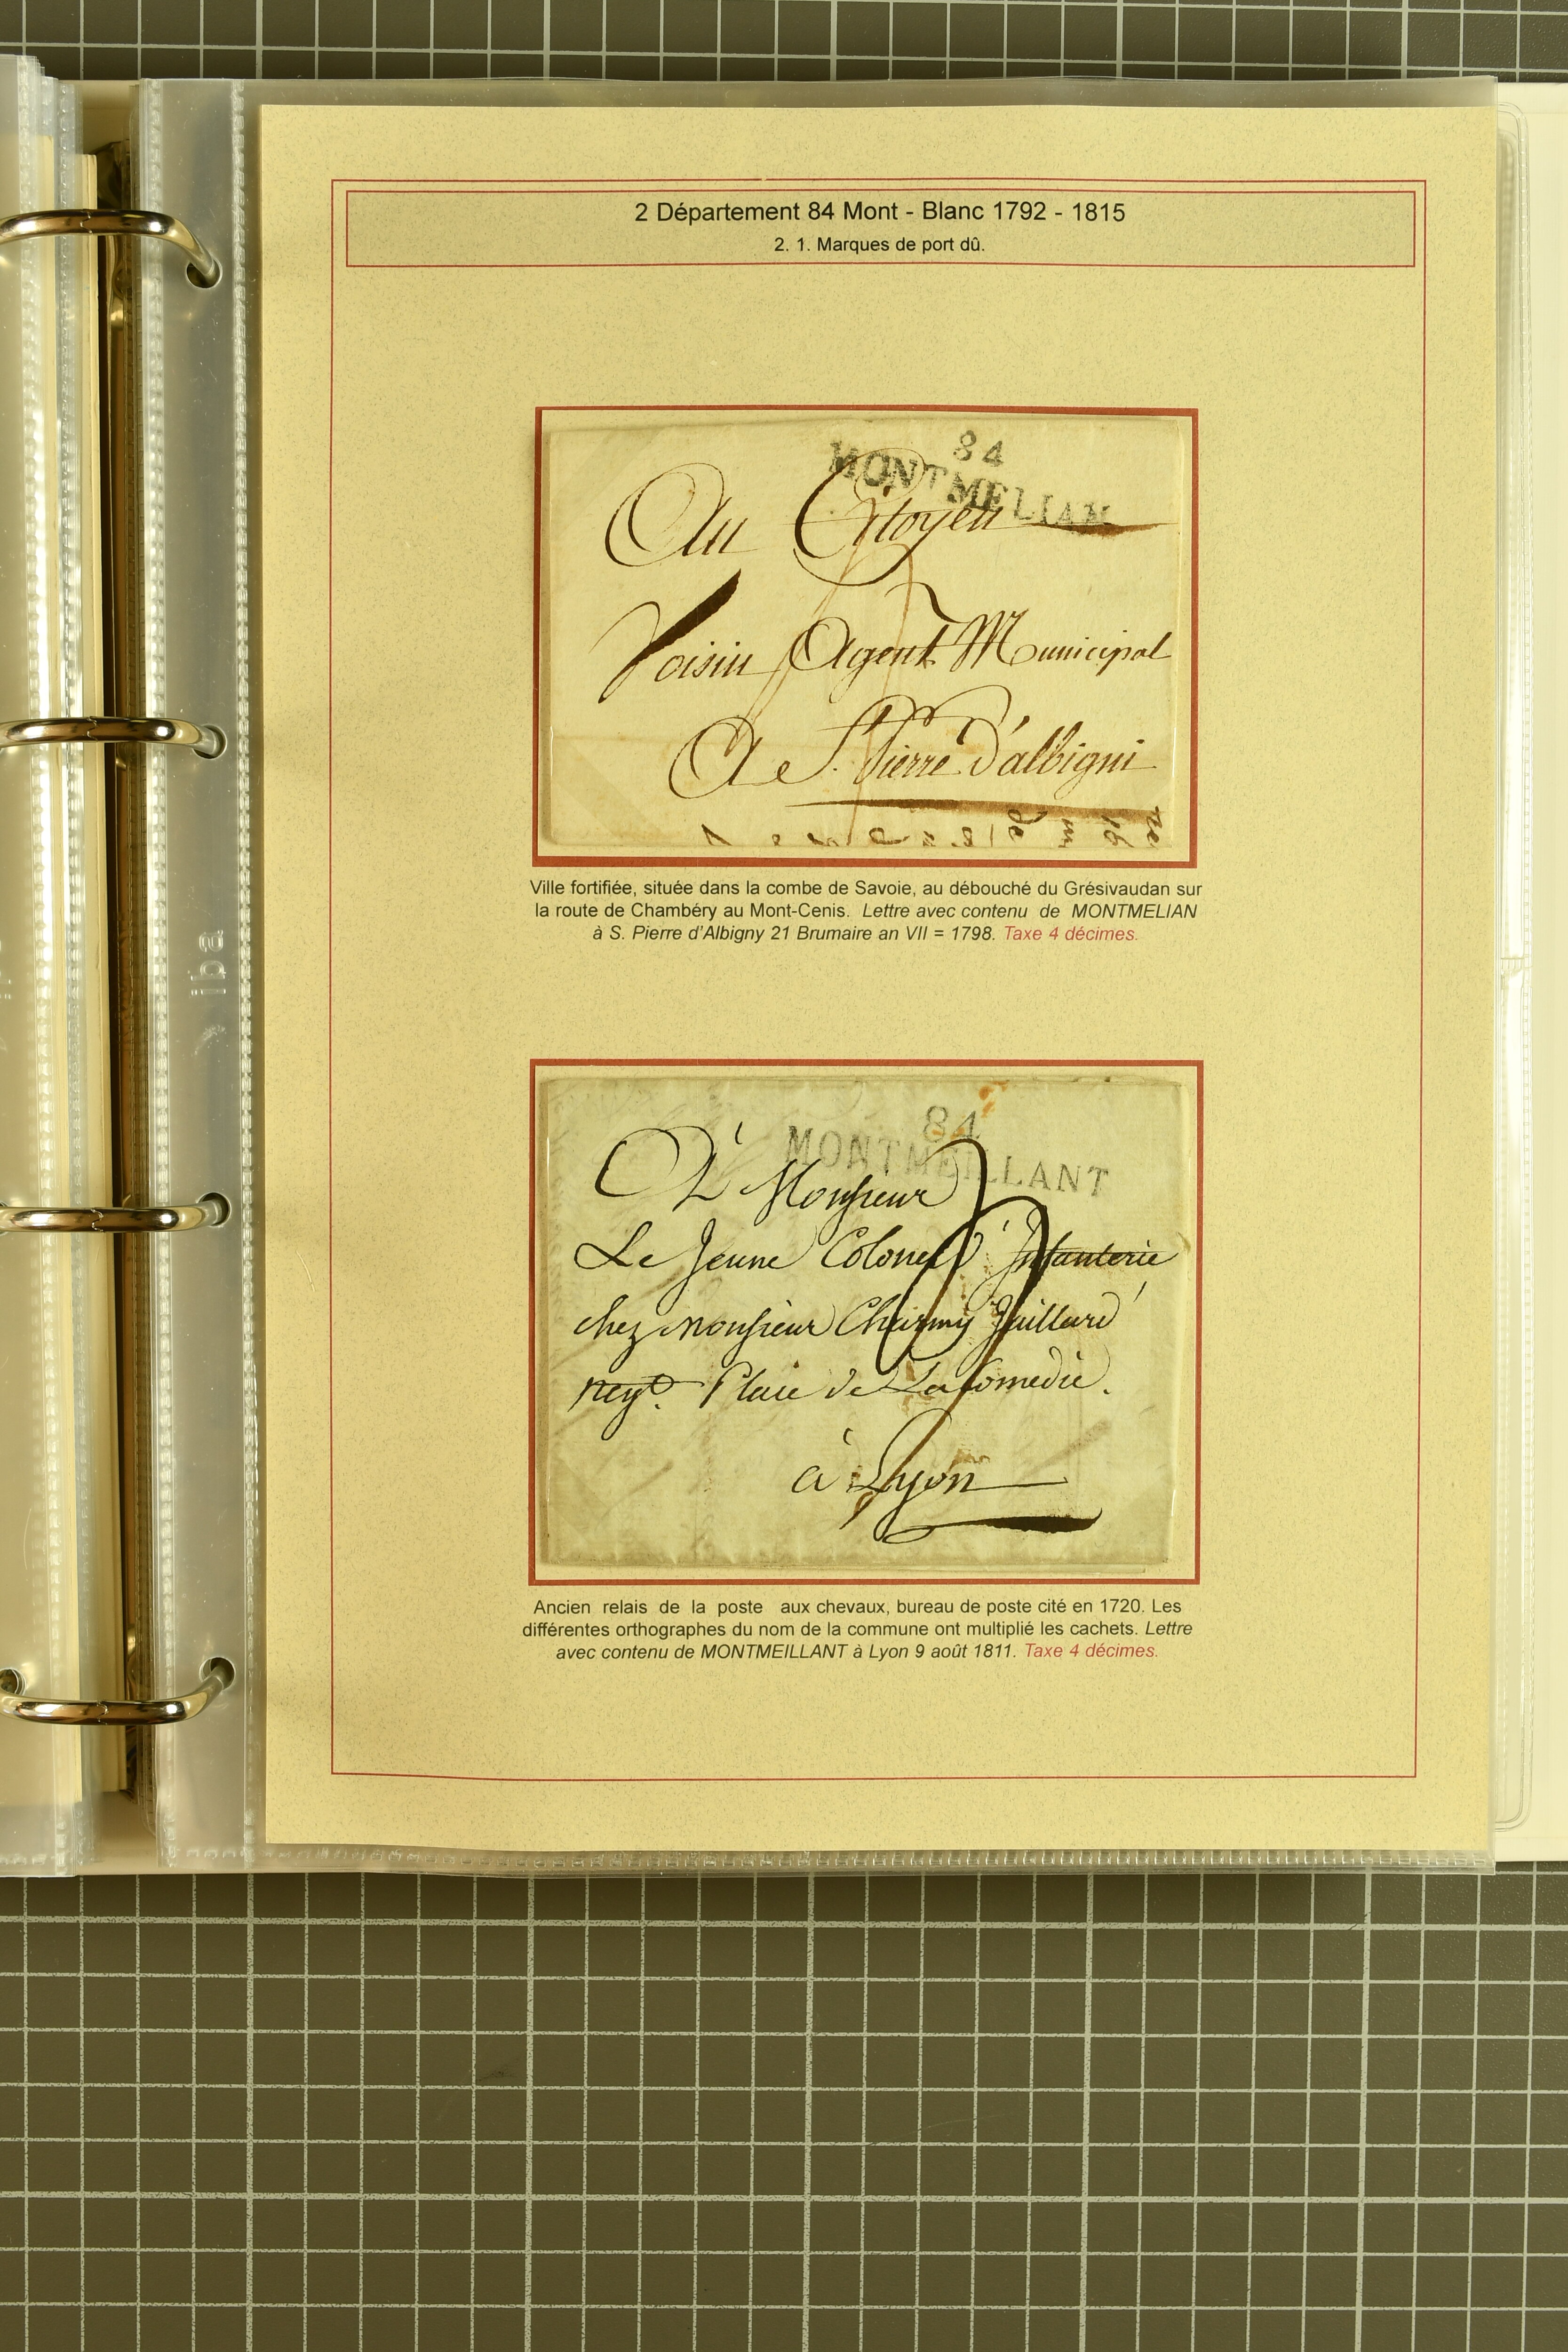 2 Département 84 Mont - Blanc 1792 - 1815
2. 1. Marques de port dû.
84
MONTMELIAN
Au Citoyen
Voisin Agent Municipal
A St. Pierre d'albigni
Ville fortifiée, située dans la combe de Savoie, au débouché du Grésivaudan sur
la route de Chambéry au Mont-Cenis. Lettre avec contenu de MONTMELIAN
à S. Pierre d'Albigny 21 Brumaire an VII = 1798. Taxe 4 décimes.
84
MONTMEILLANT
A Monsieur
Le Jeune Colonel d'Infanterie
chez Monsieur Charmy Jaillard
negt. Place de La Comedie.
à Lyon
Ancien relais de la poste aux chevaux, bureau de poste cité en 1720. Les
différentes orthographes du nom de la commune ont multiplié les cachets. Lettre
avec contenu de MONTMEILLANT à Lyon 9 août 1811. Taxe 4 décimes.
iba